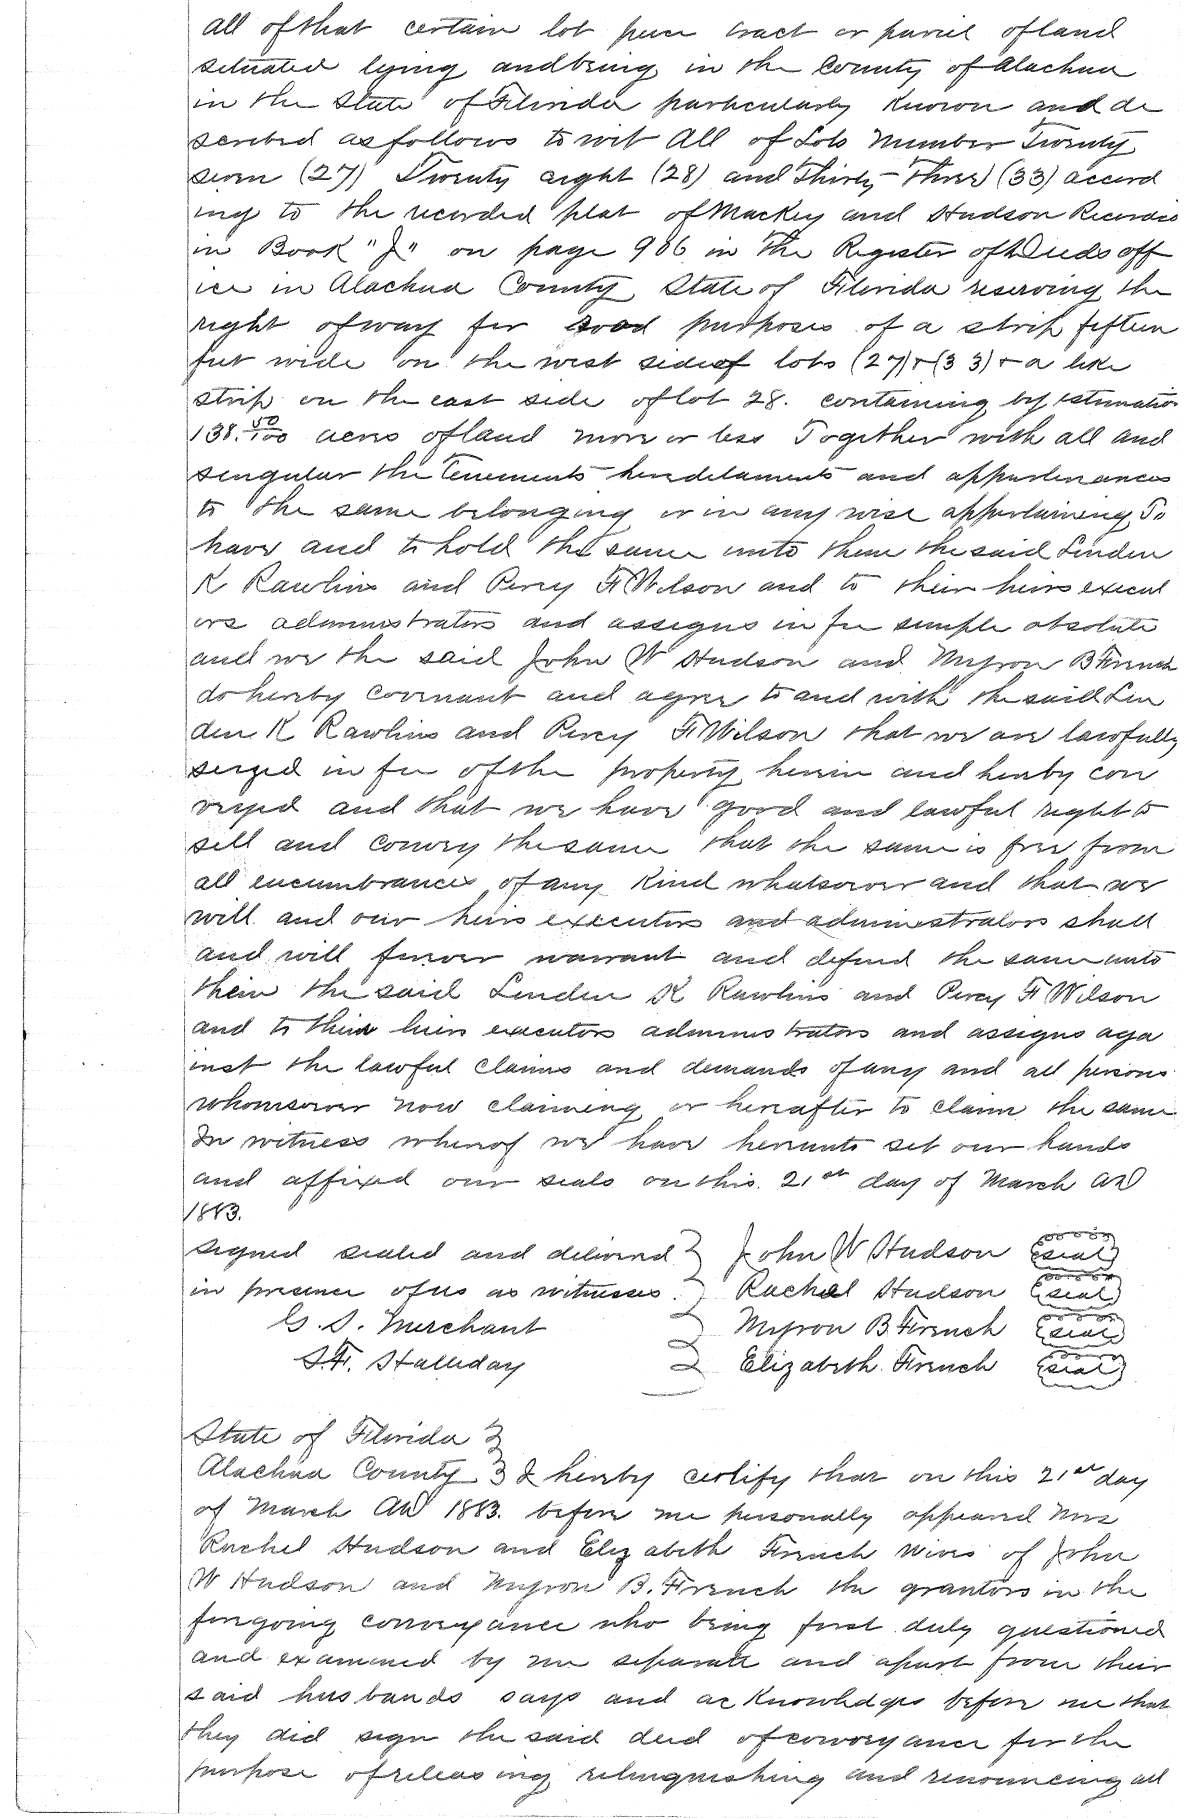 all of that certain lot piece tract or parcel of land
situated lying and being in the County of Alachua
in the State of Florida particularly known and de
scribed as follows to wit All of Lots Number Twenty
seven (27) Twenty eight (28) and Thirty-Three (33) accord
ing to the recorded plat of Mackey and Hudson Recorded
in Book "J" on page 906 in the Register of Deeds off
ice in Alachua County State of Florida reserving the
right of way for road purposes of a strip fifteen
feet wide on the west side of lots (27) + (33) + a like
strip on the east side of lot 28. containing by estimation
138. 50/100 acres of land more or less Together with all and
singular the Tenements heredetaments and appurtenances
to the same belonging or in any wise appertaining To
have and to hold the same unto them the said Linden
K Rawlins and Percy F. Wilson and to their heirs execut
ors administrators and assigns in fee simple absolute
and we the said John W Hudson and Myron B French
do hereby covenant and agree to and with the said Lin
den K Rawlins and Percy F. Wilson that we are lawfully
seized in fee of the property herein and hereby con
veyed and that we have good and lawful right to
sell and convey the same that the same is free from
all encumbrances of any kind whatsoever and that we
will and our heirs executors and administrators shall
and will forever warrant and defend the same unto
them the said Linden K Rawlins and Percy F Wilson
and to their heirs executors administrators and assigns aga
inst the lawful claims and demands of any and all persons
whomsoever now claiming or hereafter to claim the same
In witness whereof we have hereunto set our hands
and affixed our seals on this 21st day of March AD
1883.
signed sealed and delivered John W Hudson (seal)
in presence of us as witnesses. Rachel Hudson (seal)
G. S. Merchant Myron B. French (seal)
S.F. Halliday Elizabeth French (seal)
State of Florida
Alachua County I hereby certify that on this 21st day
of March AD 1883. before me personally appeared Mrs
Rachel Hudson and Elizabeth French wives of John
W Hudson and Myron B. French the grantors in the
foregoing conveyance who being first duly questioned
and examined by me separate and apart from their
said husbands says and acknowledges before me that
they did sign the said deed of conveyance for the
purpose of releasing relinquishing and renouncing all